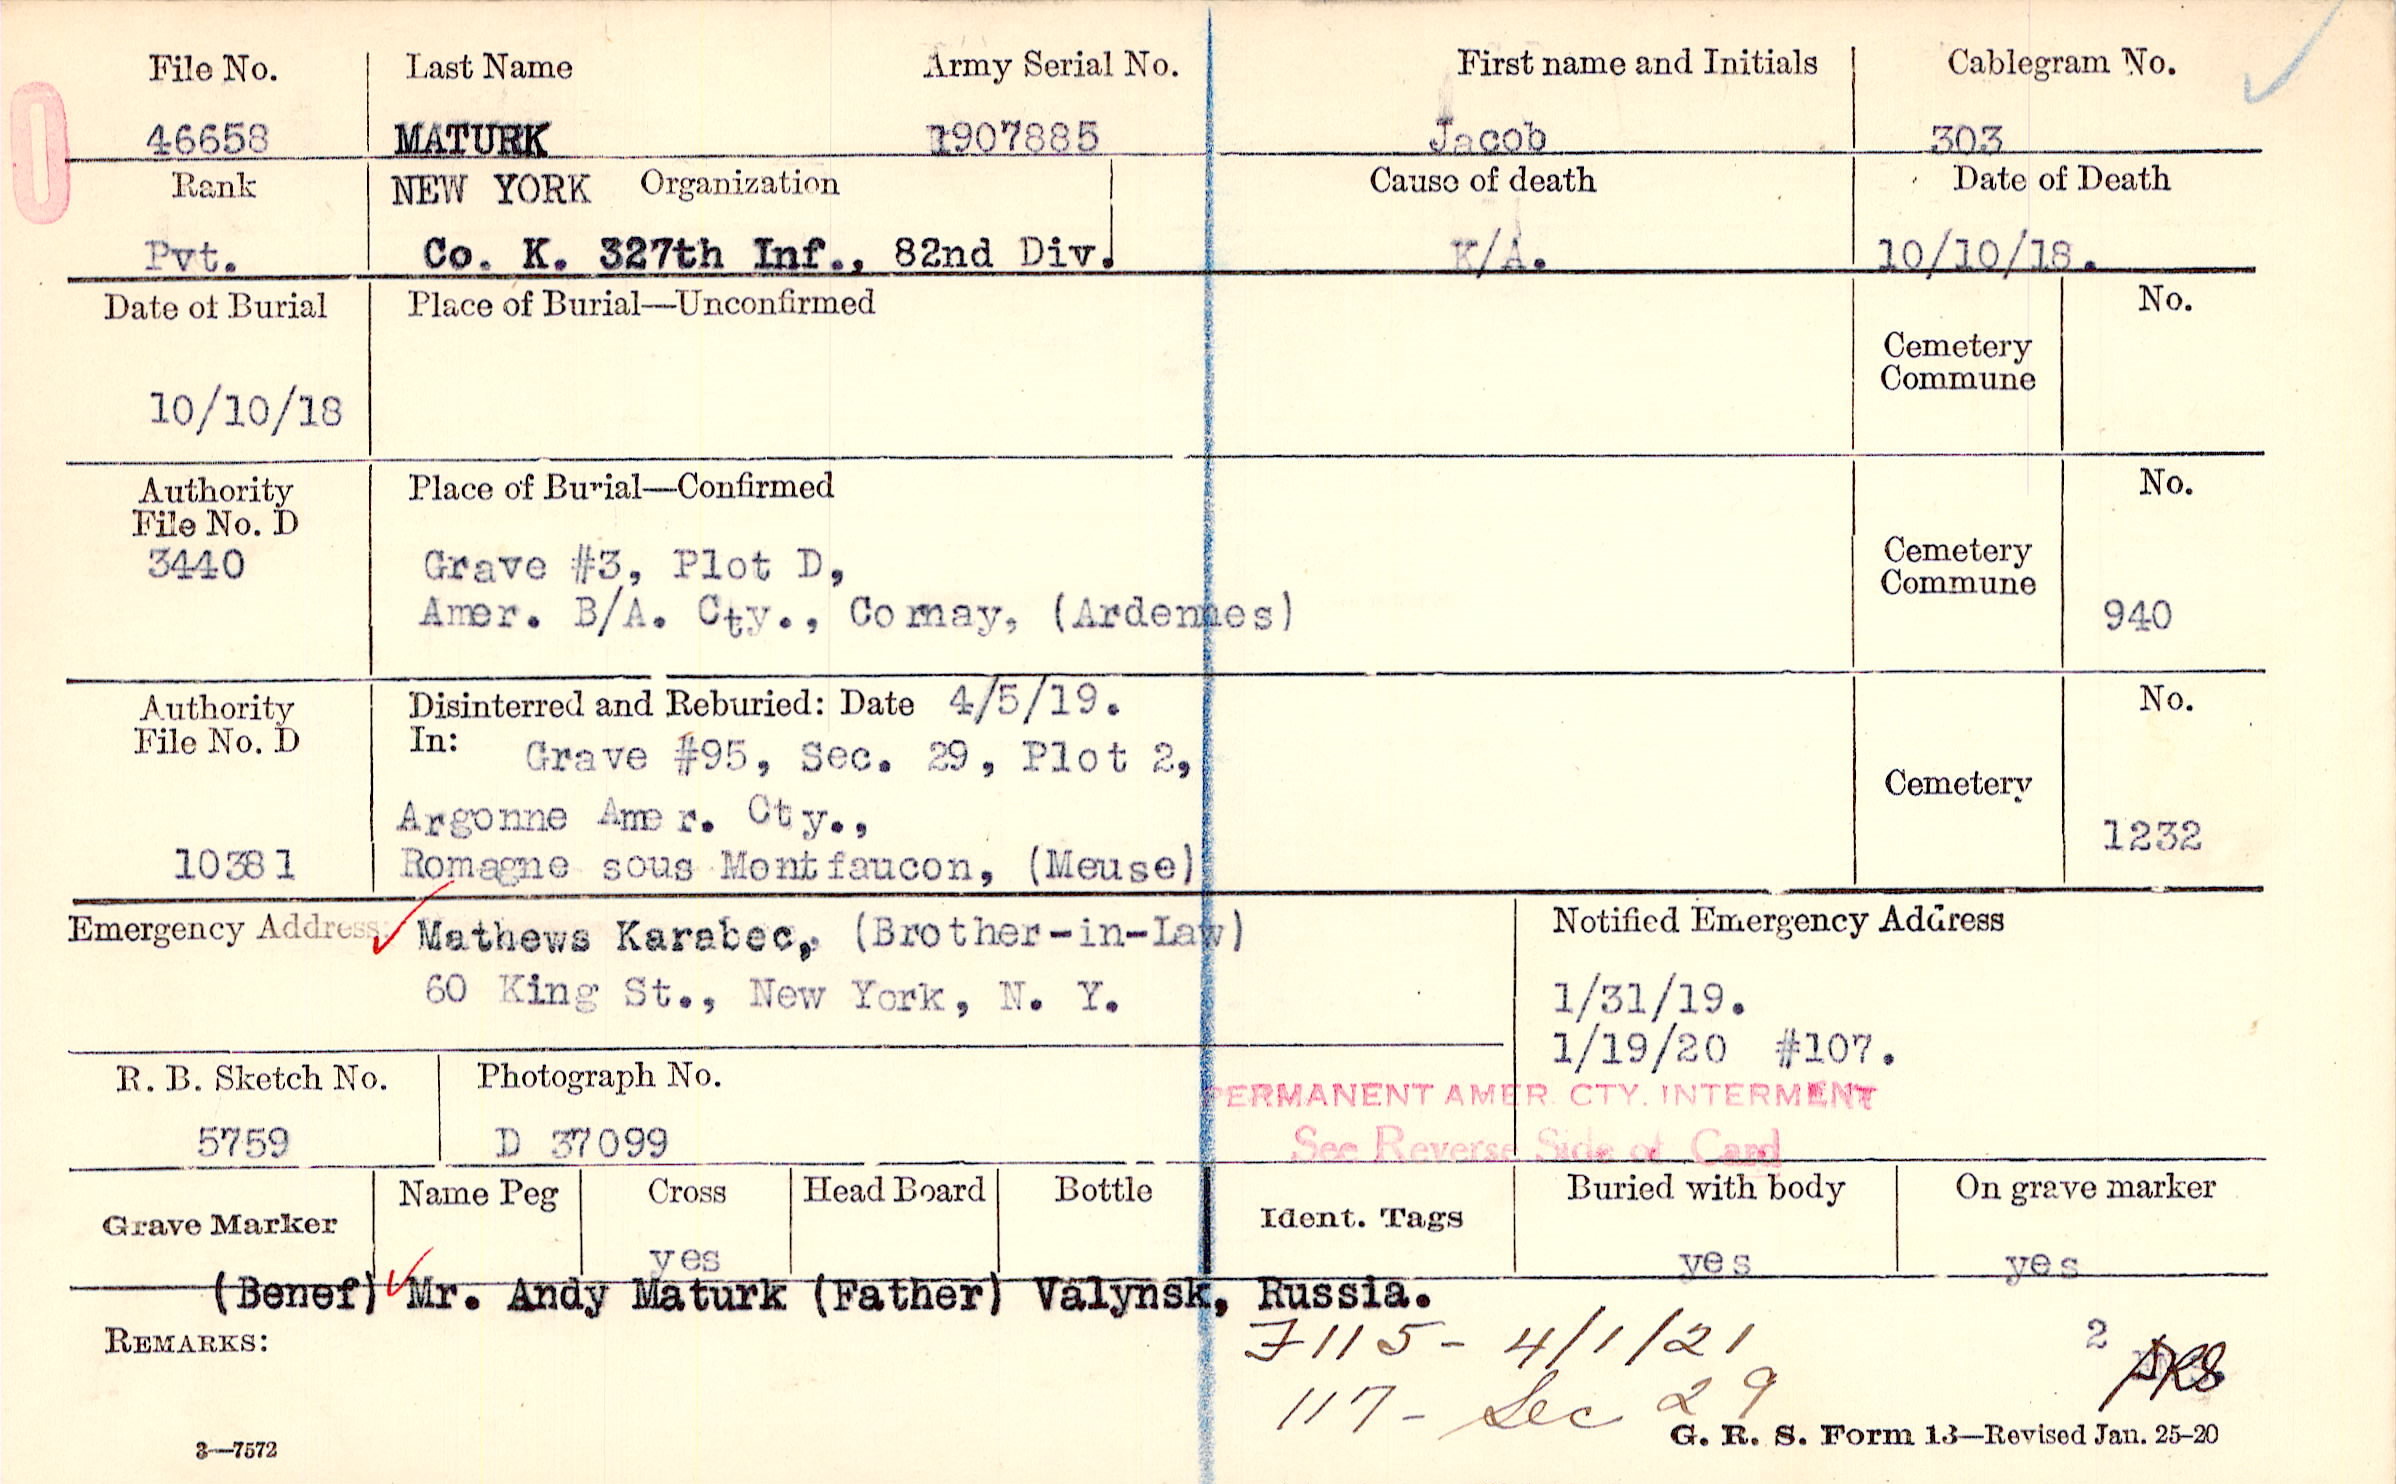 File No. Last Name Army Serial No. First name and Initials Cablegram No.
46658 MATURK 1907885 Jacob 303
Rank NEW YORK Organization Cause of death Date of Death
Pvt. Co. K. 327th Inf., 82nd Div. K/A. 10/10/18.
Date of Burial Place of Burial—Unconfirmed No.
Cemetery
Commune
10/10/18
Authority Place of Burial—Confirmed No.
File No. D
3440 Grave #3, Plot D, Cemetery
Commune
Amer. B/A. Cty., Cornay, (Ardennes) 940
Authority Disinterred and Reburied: Date 4/5/19. No.
File No. D In: Grave #95, Sec. 29, Plot 2,
Cemetery
Argonne Amer. Cty.,
10381 Romagne sous Montfaucon, (Meuse) 1232
Emergency Address: Mathews Karabec, (Brother-in-Law) Notified Emergency Address
60 King St., New York, N. Y. 1/31/19.
1/19/20 #107.
R. B. Sketch No. Photograph No.
PERMANENT AMER. CTY. INTERMENT
5759 D 37099 See Reverse Side of Card
Grave Marker Name Peg Cross Head Board Bottle Ident. Tags Buried with body On grave marker
yes yes yes
(Benef) Mr. Andy Maturk (Father) Valynsk, Russia.
REMARKS: F115 - 4/1/21 2
117 - Sec 29
3—7572 G. R. S. Form 13—Revised Jan. 25-20